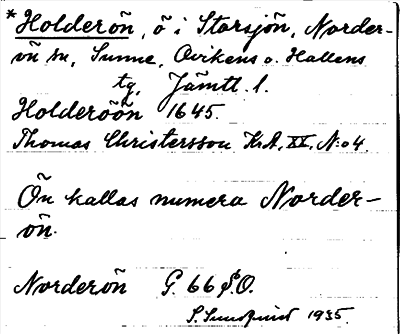 *Holderön, ö i Storsjön, Norder-
ön sn, Sunne, Ovikens o. Hallens
tg, Jämtl. l.
Holderöön 1645.
Thomas Christersson KrA, XX, N:o 4.
Ön kallas numera Norder-
ön.
Norderön G. 66 S.O.
S. Sundquist 1935